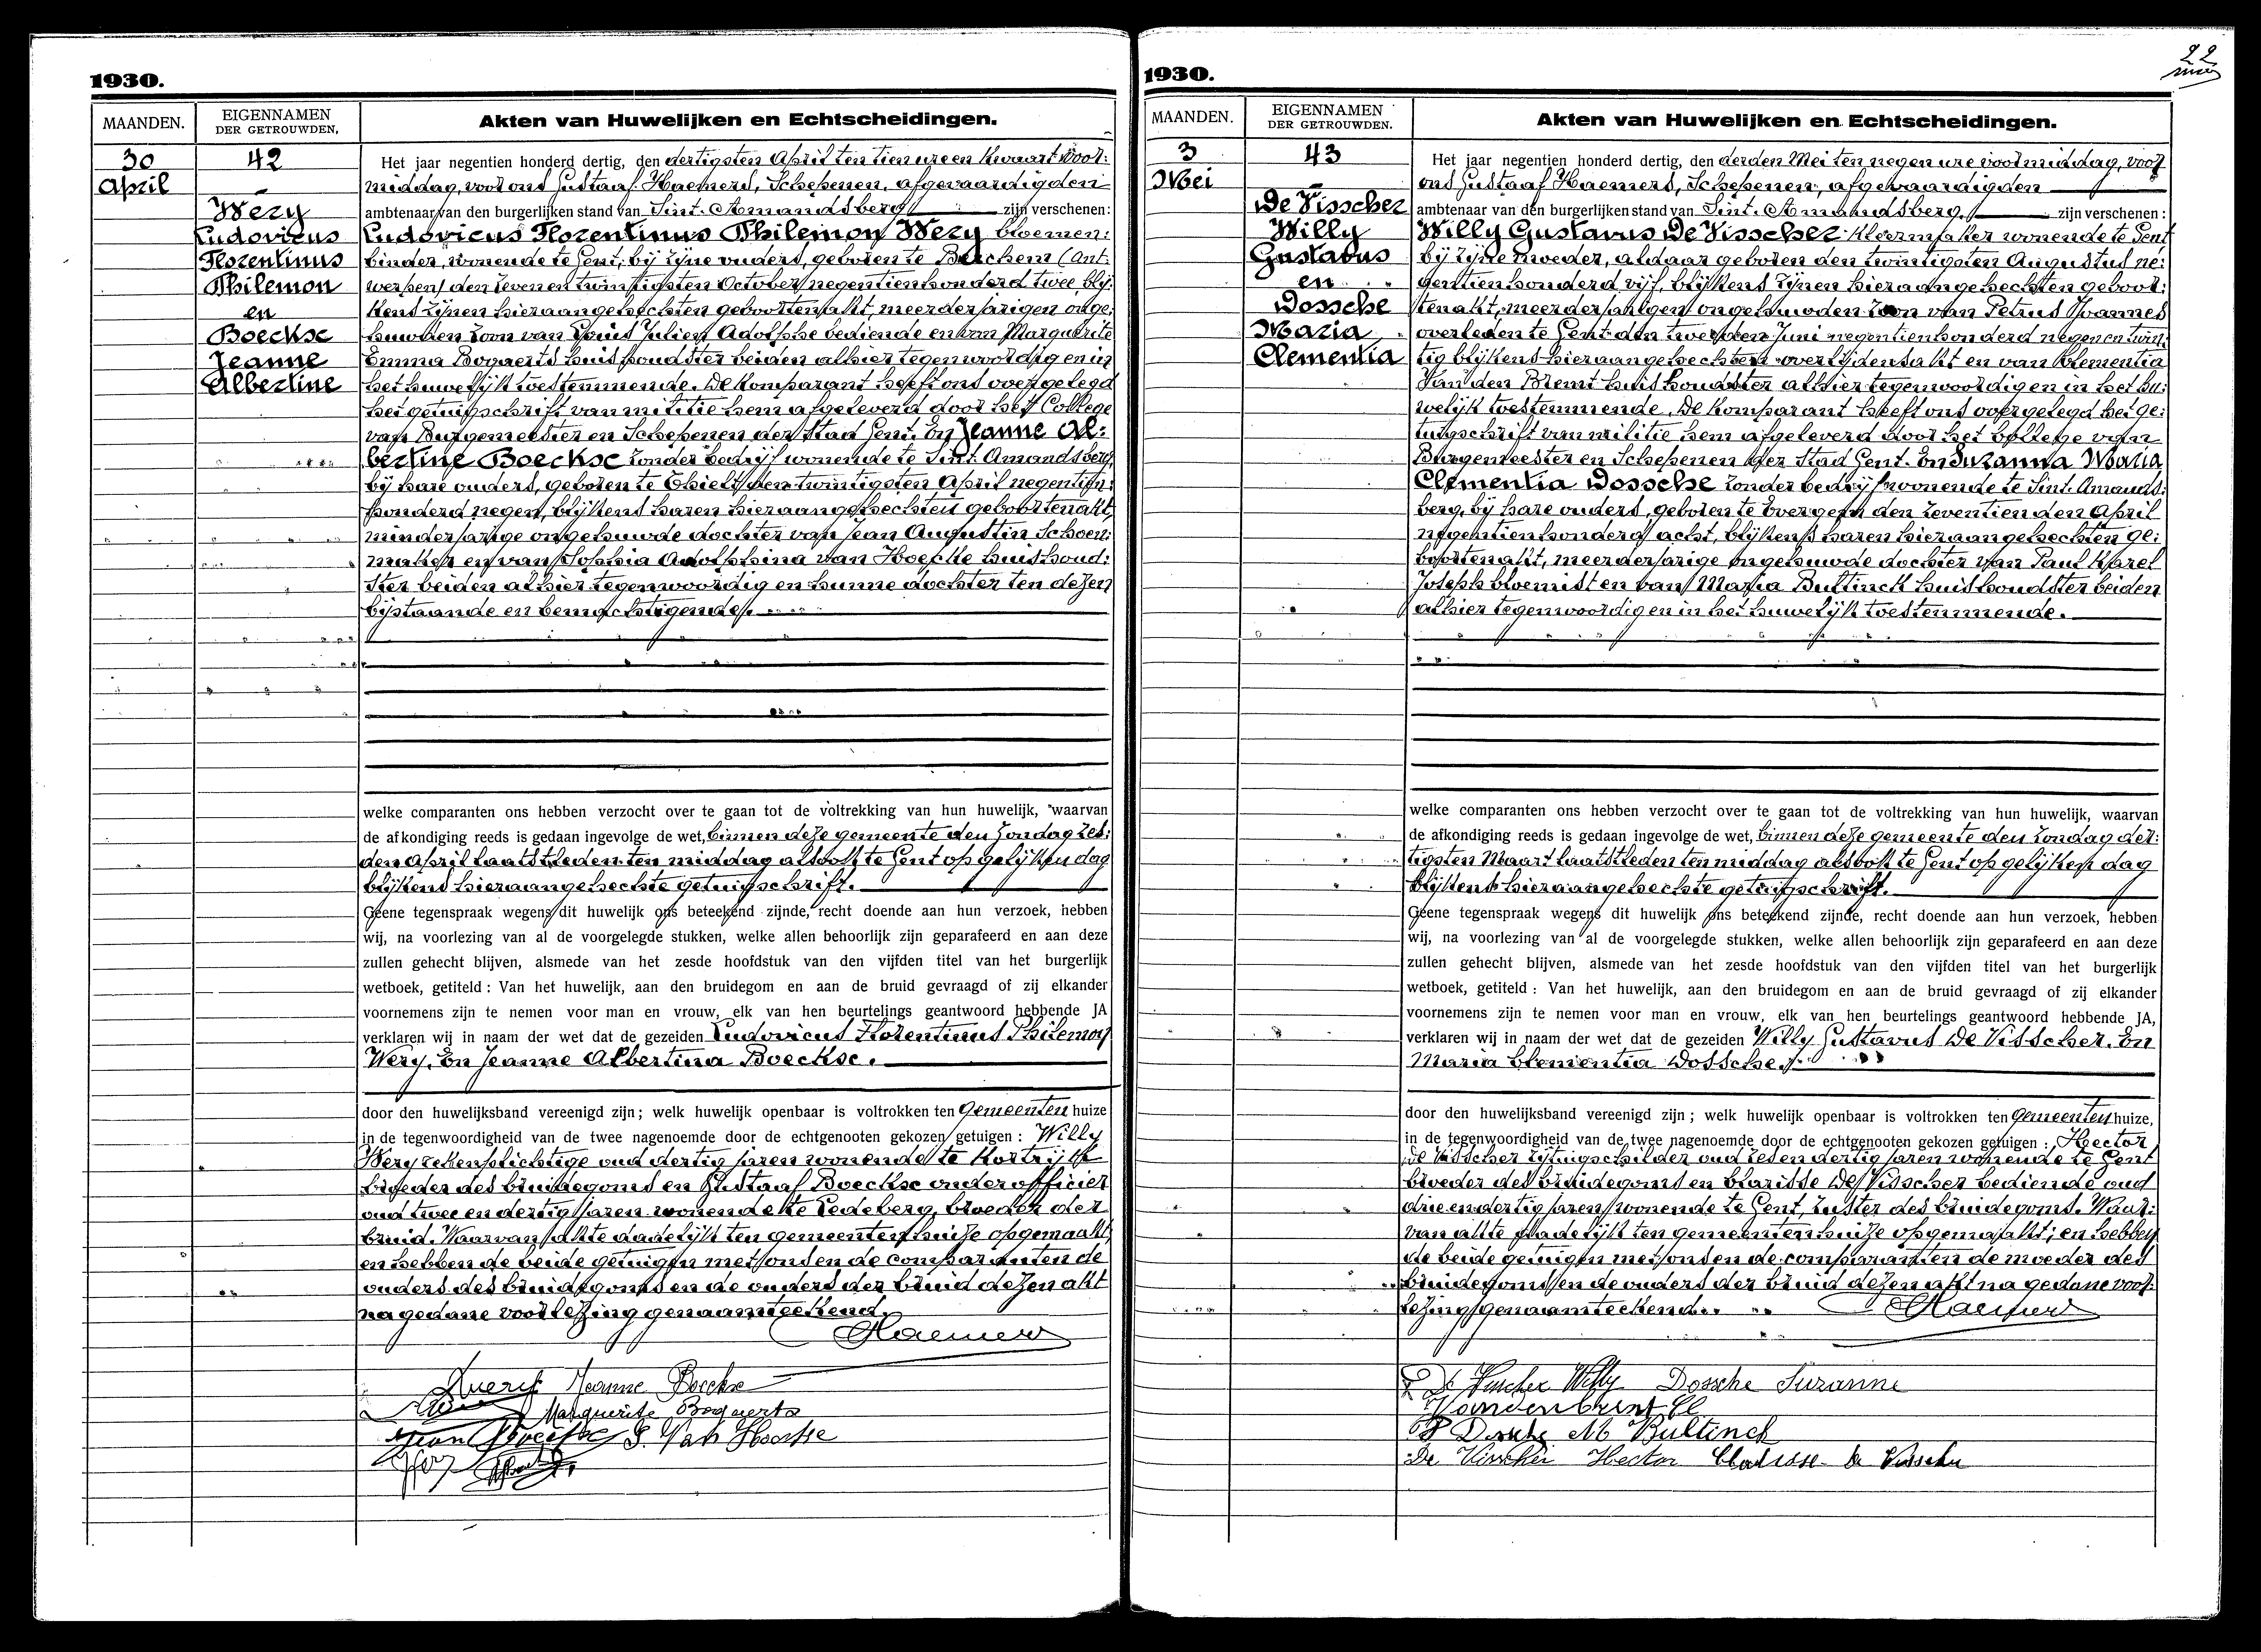 1930.
MAANDEN.
EIGENNAMEN
DER GETROUWDEN.
Akten van Huwelijken en Echtscheidingen.
30
April
42
Wery
Ludovicus
Florentinus
Philemon
en
Boeckse
Jeanne
Albertine
Het jaar negentien honderd dertig, den dertigsten April ten tien ure en kwaart voor:
middag, voor ons Gustaaf Haemers, Schepenen, afgevaardigden
ambtenaar van den burgerlijken stand van Sint-Amandsberg zijn verschenen:
Ludovicus Florentinus Philemon Wery bloemen:
binder, wonende te Gent, bij zijne ouders, geboren te Berchem (Ant:
werpen) den zeven en twintigsten October negentienhonderd twee, blij:
kens zijnen hieraangehechten geboortenakt, meerderjarigen onge:
huwden zoon van Louis Julien Adolphe bediende en van Marguerite
Emma Bogaerts huishoudster beiden alhier tegenwoordig en in
het huwelijk toestemmende. De komparant heeft ons overgelegd
het getuigschrift van militie hem afgeleverd door het College
van Burgemeester en Schepenen der Stad Gent. En Jeanne Al:
bertine Boeckse zonder bedrijf wonende te Sint-Amandsberg,
bij hare ouders, geboren te Thielt den twintigsten April negentien:
honderd negen, blijkens haren hieraangehechten geboortenakt,
minderjarige ongehuwde dochter van Jean Augustin Schoen:
maker en van Sophia Adolphina van Hoecke huishoud:
ster beiden alhier tegenwoordig en hunne dochter ten dezen
bijstaande en bemachtigende.
welke comparanten ons hebben verzocht over te gaan tot de voltrekking van hun huwelijk, waarvan
de afkondiging reeds is gedaan ingevolge de wet, binnen deze gemeente den Zondag zes:
den April laatstleden ten middag alsook te Gent op gelijken dag
blijkens hieraangehechte getuigschrift.
Geene tegenspraak wegens dit huwelijk ons beteekend zijnde, recht doende aan hun verzoek, hebben
wij, na voorlezing van al de voorgelegde stukken, welke allen behoorlijk zijn geparafeerd en aan deze
zullen gehecht blijven, alsmede van het zesde hoofdstuk van den vijfden titel van het burgerlijk
wetboek, getiteld : Van het huwelijk, aan den bruidegom en aan de bruid gevraagd of zij elkander
voornemens zijn te nemen voor man en vrouw, elk van hen beurtelings geantwoord hebbende JA
verklaren wij in naam der wet dat de gezeiden Ludovicus Florentinus Philemon
Wery, En Jeanne Albertina Boeckse.
door den huwelijksband vereenigd zijn ; welk huwelijk openbaar is voltrokken ten Gemeentenhuize
in de tegenwoordigheid van de twee nagenoemde door de echtgenooten gekozen getuigen : Willy
Wery rekenplichtige oud dertig jaren wonende te Kortrijk
broeder des bruidegoms en Gustaaf Boeckse onderofficier
oud twee en dertig jaren wonende te Ledeberg, broeder der
bruid. Waarvan akte dadelijk ten gemeentenhuize opgemaakt,
en hebben de beide getuigen met ons en de comparanten de
ouders des bruidegoms en de ouders der bruid dezen akt
na gedane voorlezing genaamteekend.
Haemers
Jeanne Boeckse
Marguerite Bogaerts
Jean Boeckse S. Van Hoecke
1930.
22
MAANDEN.
EIGENNAMEN
DER GETROUWDEN.
Akten van Huwelijken en Echtscheidingen.
3
Mei
43
De Visscher
Willy
Gustavus
en
Dossche
Maria
Clementia
Het jaar negentien honderd dertig, den derden Mei ten negen ure voormiddag, voor
ons Gustaaf Haemers, Schepenen, afgevaardigden
ambtenaar van den burgerlijken stand van Sint-Amandsberg, zijn verschenen :
Willy Gustavus De Visscher kleermaker wonende te Gent
bij zijne moeder, aldaar geboren den twintigsten Augustus ne:
gentienhonderd vijf, blijkens zijnen hieraangehechten geboor:
tenakt, meerderjarigen ongehuwden zoon van Petrus Joannes
overleden te Gent den tweeden Juni negentienhonderd negen en twin:
tig blijkens hieraangehechten overlijdensakt en van Clementia
Van den Bremt huishoudster alhier tegenwoordig en in het hu:
welijk toestemmende. De komparant heeft ons overgelegd het ge:
tuigschrift van militie hem afgeleverd door het College van
Burgemeester en Schepenen der Stad Gent. En Suzanna Maria
Clementia Dossche zonder bedrijf wonende te Sint-Amands:
berg, bij hare ouders, geboren te Evergem den zeventienden April
negentienhonderd acht, blijkens haren hieraangehechten ge:
boortenakt, meerderjarige ongehuwde dochter van Paul Karel
Joseph bloemist en van Maria Bultinck huishoudster beiden
alhier tegenwoordig en in het huwelijk toestemmende.
welke comparanten ons hebben verzocht over te gaan tot de voltrekking van hun huwelijk, waarvan
de afkondiging reeds is gedaan ingevolge de wet, binnen deze gemeente den Zondag der:
tigsten Maart laatstleden ten middag alsook te Gent op gelijken dag
blijkens hieraangehechte getuigschrift.
Geene tegenspraak wegens dit huwelijk ons beteekend zijnde, recht doende aan hun verzoek, hebben
wij, na voorlezing van al de voorgelegde stukken, welke allen behoorlijk zijn geparafeerd en aan deze
zullen gehecht blijven, alsmede van het zesde hoofdstuk van den vijfden titel van het burgerlijk
wetboek, getiteld : Van het huwelijk, aan den bruidegom en aan de bruid gevraagd of zij elkander
voornemens zijn te nemen voor man en vrouw, elk van hen beurtelings geantwoord hebbende JA,
verklaren wij in naam der wet dat de gezeiden Willy Gustavus De Visscher. En
Maria Clementia Dossche.
door den huwelijksband vereenigd zijn ; welk huwelijk openbaar is voltrokken ten Gemeentenhuize,
in de tegenwoordigheid van de twee nagenoemde door de echtgenooten gekozen getuigen : Hector
De Visscher rijtuigschilder oud zes en dertig jaren wonende te Gent
broeder des bruidegoms en Clarisse De Visscher bediende oud
drie en dertig jaren wonende te Gent, zuster des bruidegoms. Waar:
van akte dadelijk ten gemeentenhuize opgemaakt, en hebben
de beide getuigen met ons en de comparanten de moeder des
bruidegoms en de ouders der bruid dezen akt na gedane voor:
lezing genaamteekend. Haemers
De Visscher Willy Dossche Suzanne
Vandenbremt Cl
P Dossche M Bultinck
De Visscher Hector Clarisse De Visscher